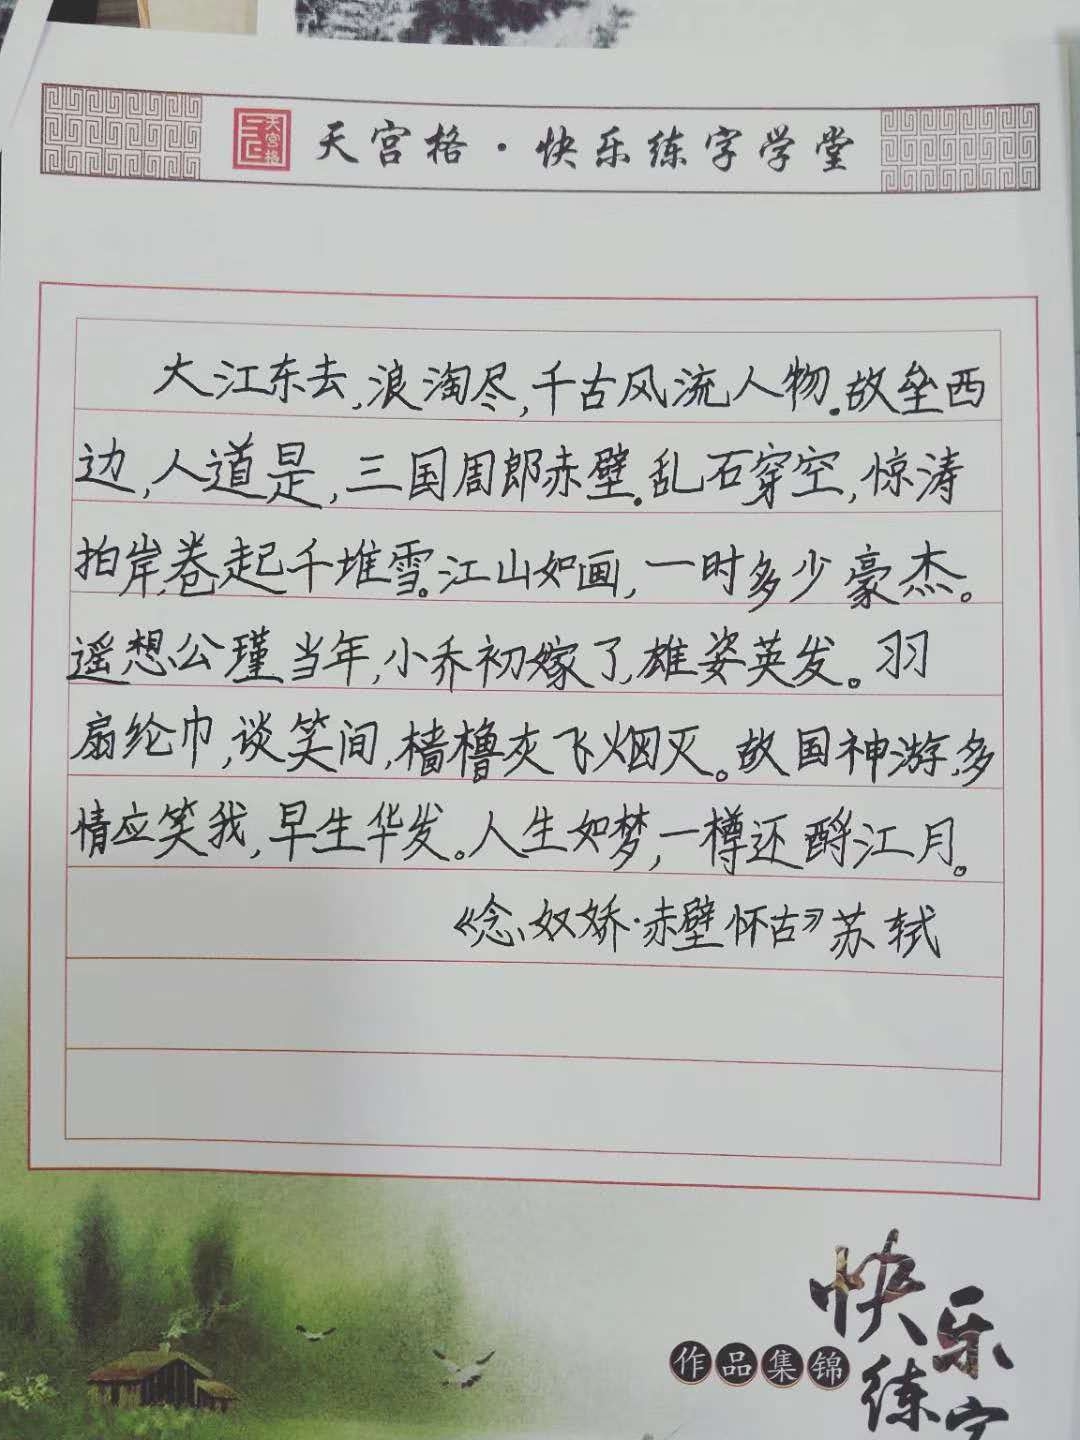 天宫格
天宫格·快乐练字学堂
大江东去,浪淘尽,千古风流人物。故垒西
边,人道是,三国周郎赤壁。乱石穿空,惊涛
拍岸,卷起千堆雪。江山如画,一时多少豪杰。
遥想公瑾当年,小乔初嫁了,雄姿英发。羽
扇纶巾,谈笑间,樯橹灰飞烟灭。故国神游,多
情应笑我,早生华发。人生如梦,一樽还酹江月。
《念奴娇·赤壁怀古》苏轼
快乐
练字
作品集锦